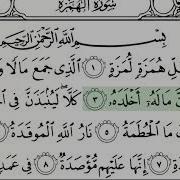 سُورَةُ الهُمَزَةِ
بِسْمِ اللَّهِ الرَّحْمَٰنِ الرَّحِيمِ
لِّ هُمَزَةٍ لُّمَزَةٍ ١ الَّذِي جَمَعَ مَالًا وَ
نَّ مَالَهُۥٓ أَخْلَدَهُۥ ٣ كَلَّا ۖ لَيُنۢبَذَنَّ فِي
مَا الْحُطَمَةُ ٥ نَارُ اللَّهِ الْمُوقَدَةُ
ةِ ٧ إِنَّهَا عَلَيْهِم مُّؤْصَدَةٌ ٨ فِي عَمَدٍ